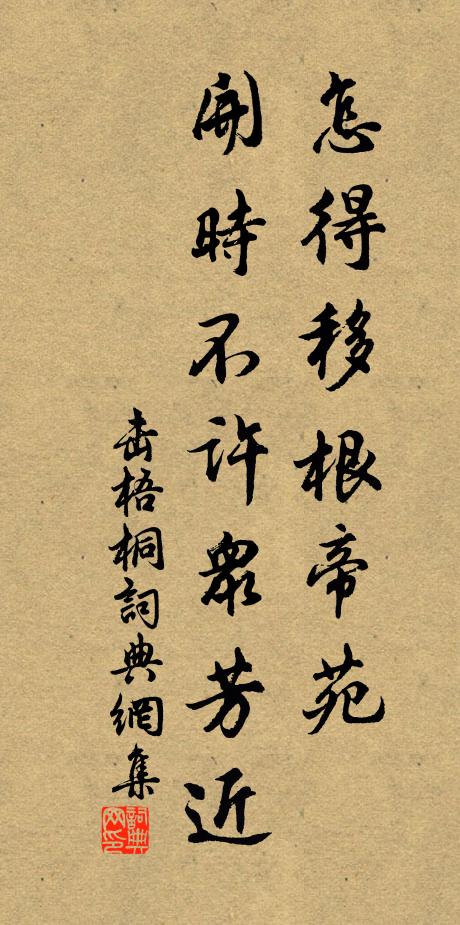 怎得移根帝苑
開時不許眾芳近
击梧桐詞典網集
詞典
网印